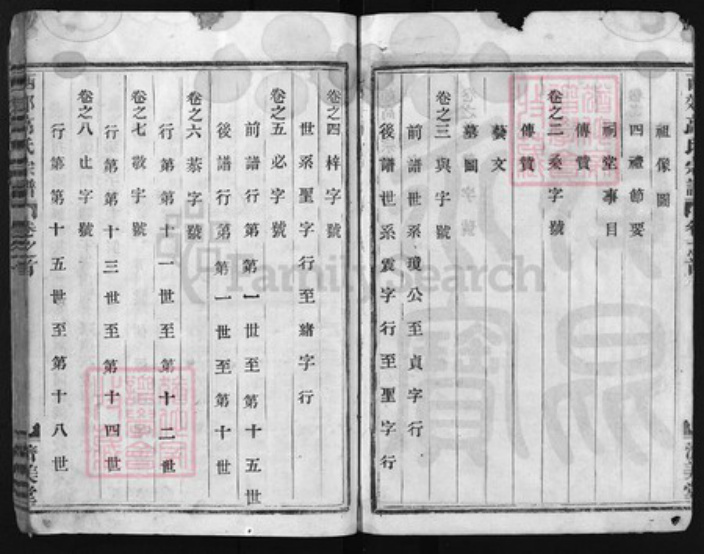 祖像圖
四禮節要
祠堂事目
傳贊
卷之二桑字號
傳贊
藝文
墓圖
卷之三與字號
前譜世系瓊公至貞字行
後譜世系震字行至聖字行
卷之四梓字號
世系聖字行至緒字行
卷之五必字號
前譜行第第一世至第十五世
後譜行第第一世至第十世
卷之六恭字號
行第第十一世至第十二世
卷之七敬字號
行第第十三世至第十四世
卷之八止字號
行第第十五世至第十八世
高氏宗譜
卷之首
濟美堂
FamilySearch